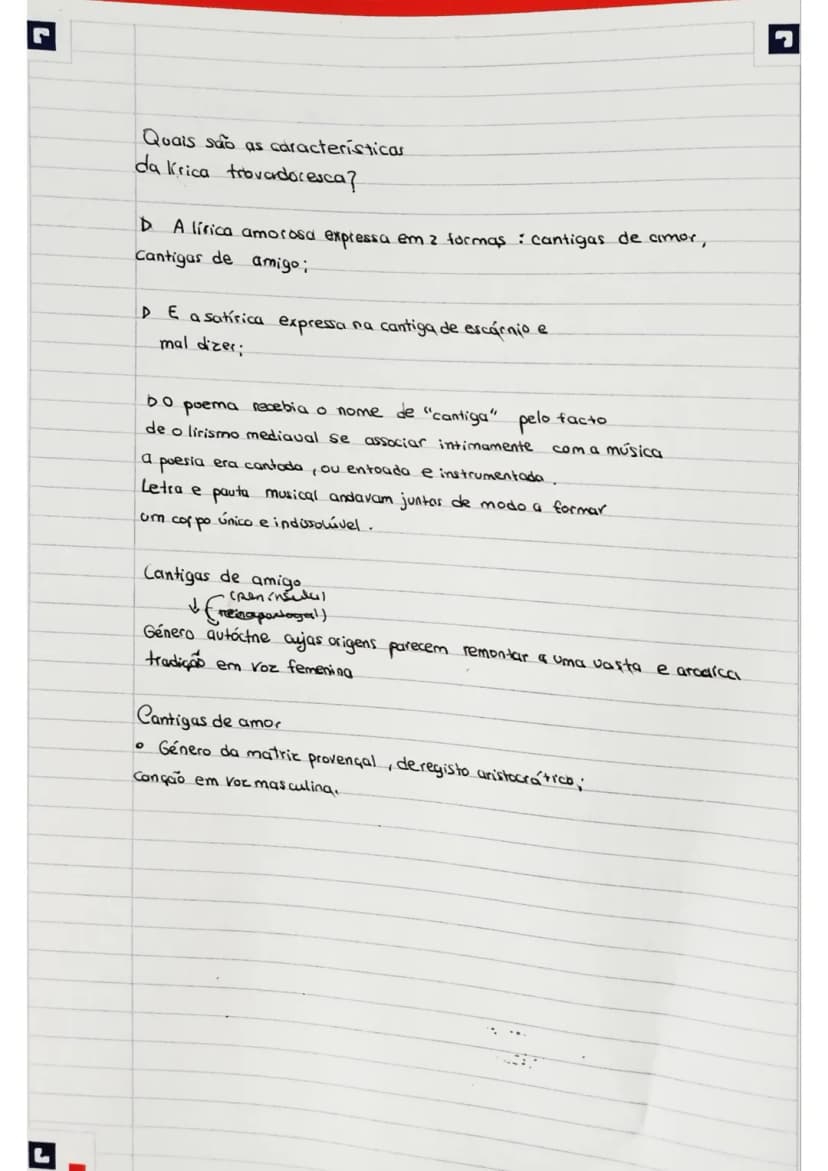 Quais são as características
da lírica trovadoresca?
D A lírica amorosa expressa em 2 formas : cantigas de amor,
Cantigas de amigo;
D E a satírica expressa na cantiga de escárnio e
mal dizer;
D O poema recebia o nome de "cantiga" pelo facto
de o lirismo mediaval se associar intimamente com a música
a poesia era cantada , ou entoada e instrumentada .
Letra e pauta musical andavam juntas de modo a formar
um corpo único e indissolúvel .
Cantigas de amigo
↓ (peninsular
Género autóctne cujas origens parecem remontar a uma vasta e arcaíca
tradição em voz femenina
Cantigas de amor
• Género da matriz provençal , de registo aristocrático;
Canção em voz masculina.